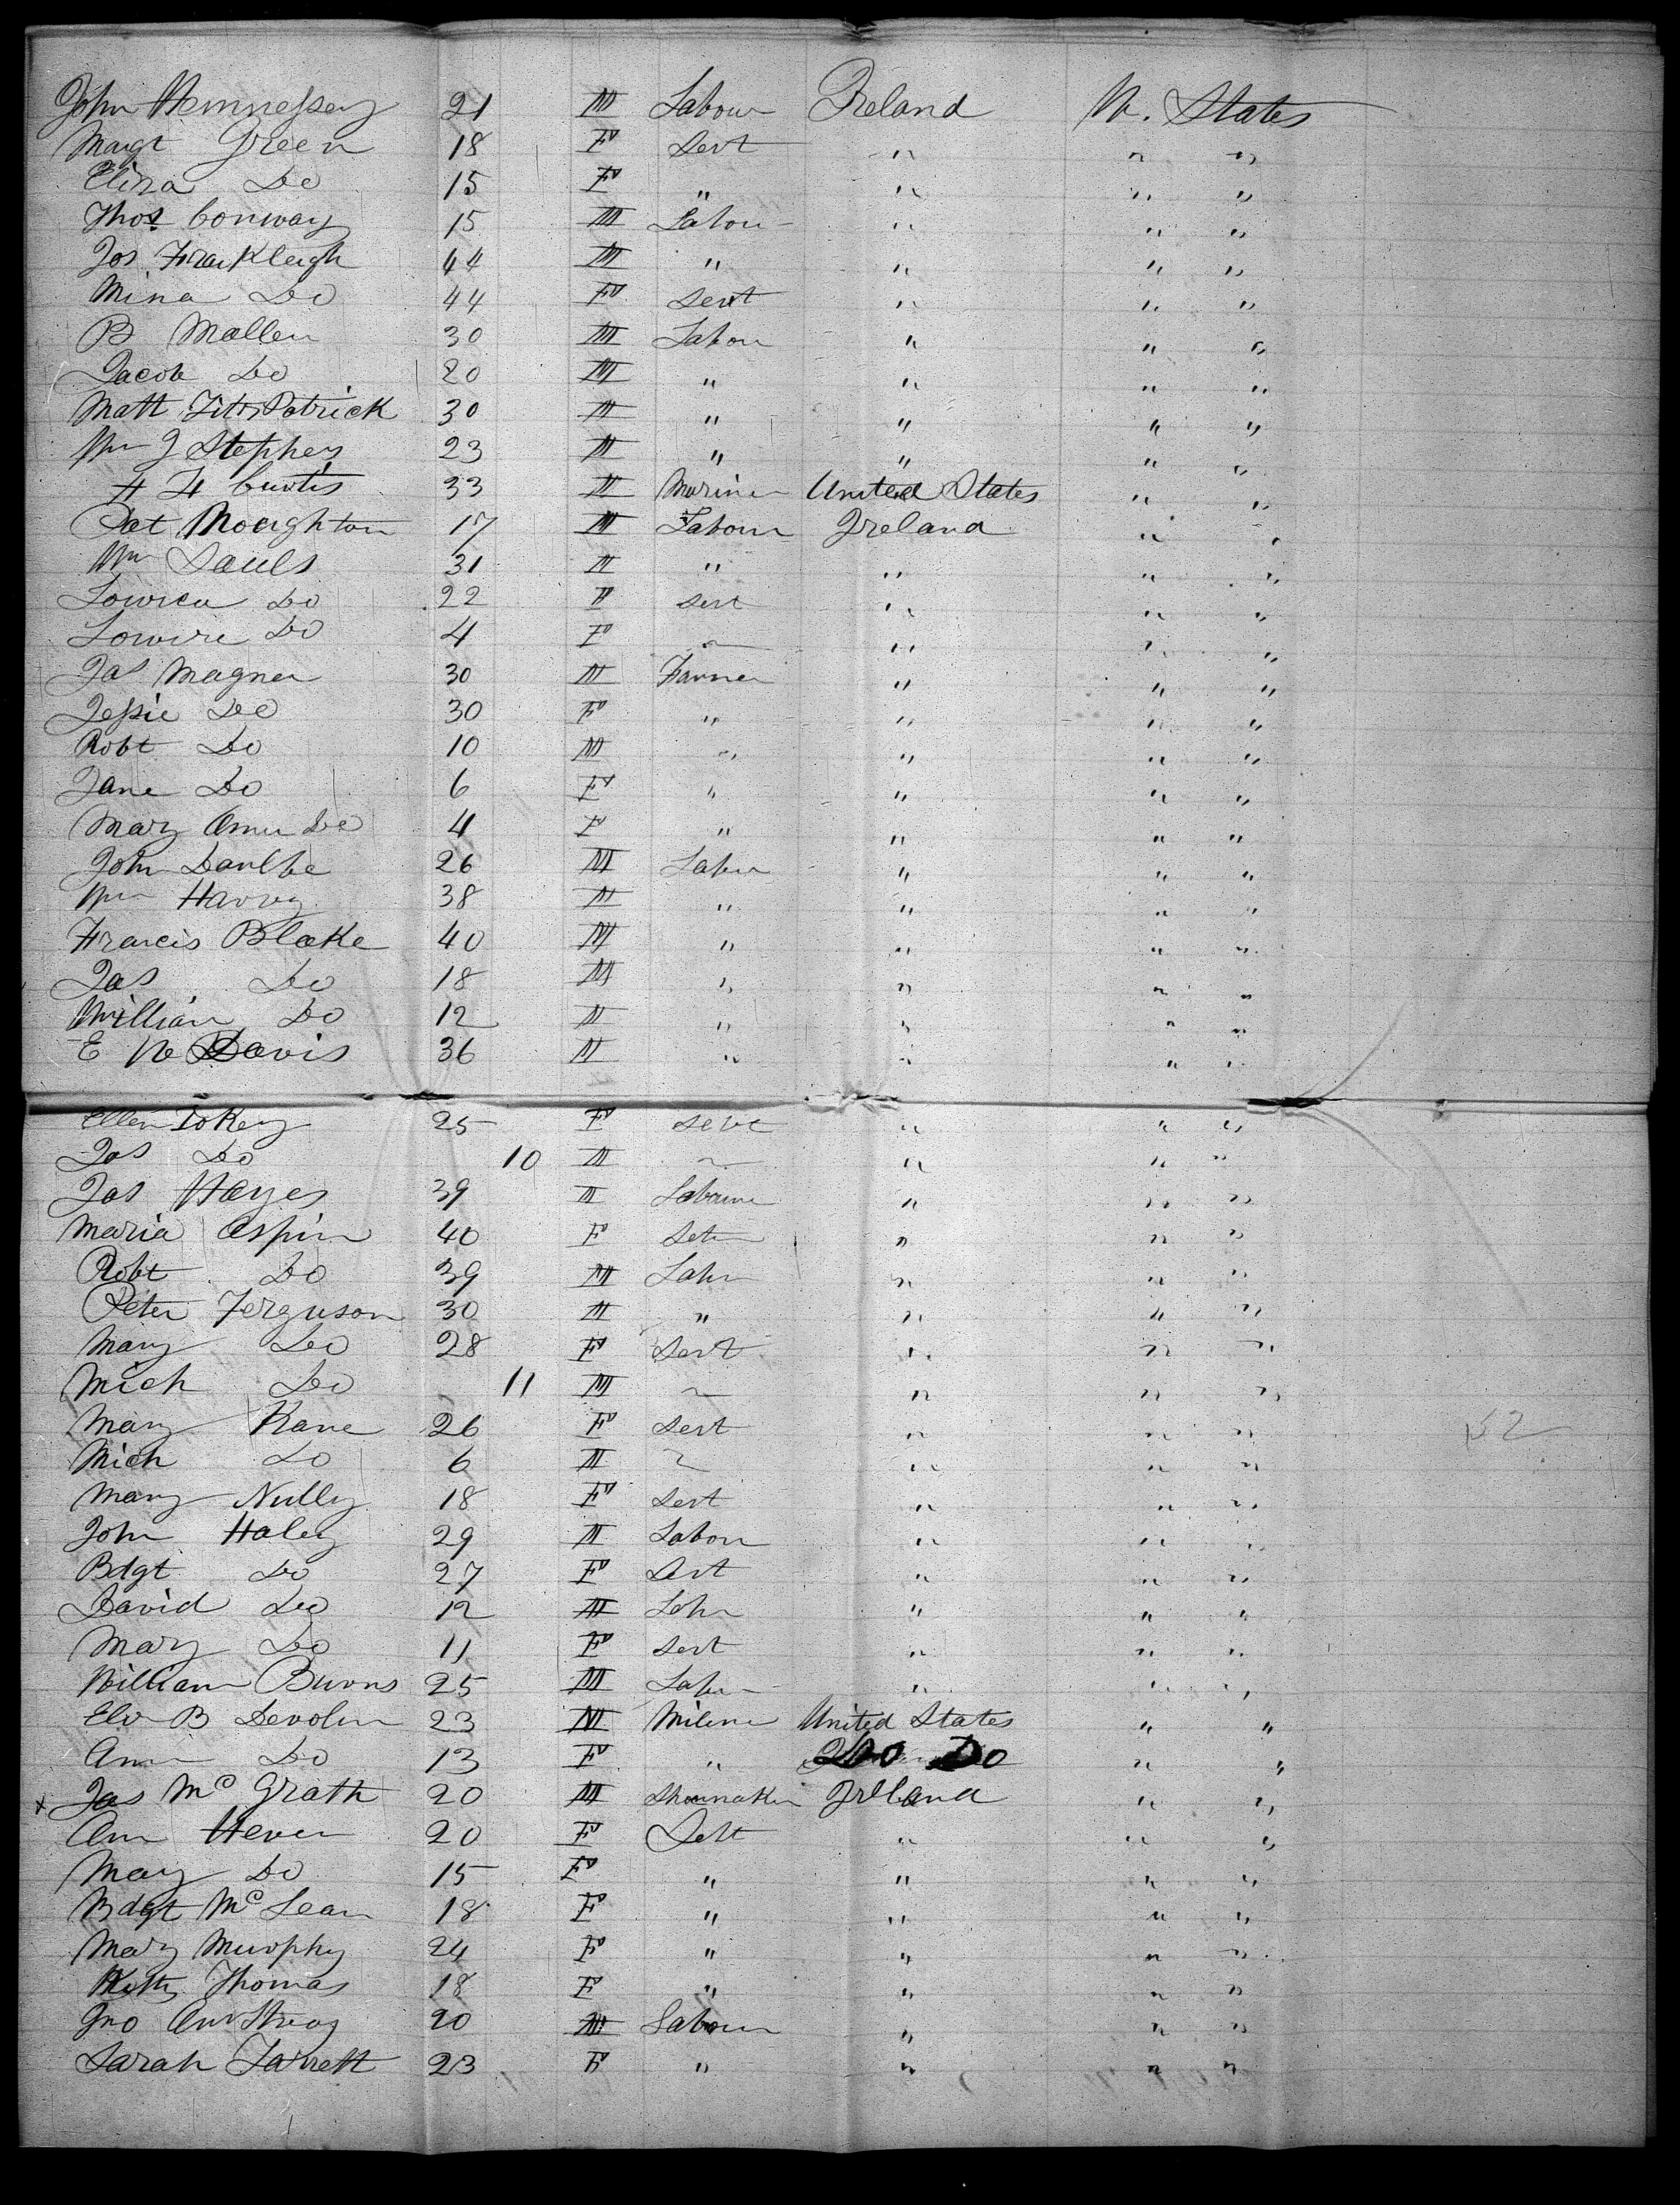 John Hennessey 21 M Labour Ireland U. States
Margt Green 18 F Sert " " "
Eliza Do 15 F " " " "
Thos Conway 15 M Labour " " "
Jos Frankleigh 44 M " " " "
Mina Do 44 F Sert " " "
B Mallen 30 M Labou " " "
Jacob Do 20 M " " " "
Matt FittsPatrick 30 M " " " "
Wm J Stephens 23 M " " " "
H H Curtis 33 M Mariner United States " "
Pat Moughton 17 M Labour Ireland " "
Wm Sauls 31 M " " " "
Do 22 F Sert " " "
Do 4 F ~ " " "
Jas Magner 30 M Farmer " " "
Jessie Do 30 F " " " "
Robt Do 10 M " " " "
Jane Do 6 F " " " "
Mary Ann Do 4 F " " " "
John 26 M Labur " " "
Wm Harvey 38 M " " " "
Francis Blake 40 M " " " "
Jas Do 18 M " " " "
William Do 12 M " " " "
E W Davis 36 M " " " "
Ellen Tokey 25 F Sert " " "
Jas Do 10 M ~ " " "
Jas Hayes 39 M Laboure " " "
Maria Aspin 40 F " " "
Robt Do 39 M Labr " " "
Peter Ferguson 30 M " " " "
Mary Do 28 F Sert " " "
Mich Do 11 M ~ " " "
Mary Kane 26 F Sert " " " 52
Mich Do 6 M ~ " " "
Mary Nully 18 F Sert " " "
John Haley 29 M Labou " " "
Bdgt Do 27 F Sert " " "
David Do 12 M Labr " " "
Mary Do 11 F Sert " " "
William Burns 25 M Labr " " "
B Devolin 23 M United States " "
Ann Do 13 F " Do Do " "
x Jas Mc Grath 20 M Shoemaker Ireland " "
Ann Hever 20 F Sert " " "
Mary Do 15 F " " " "
Bdgt Mc Lean 18 F " " " "
Mary Murphy 24 F " " " "
Thomas 18 F " " " "
Jno Armstrong 20 M Labour " " "
Sarah Jarrett 23 F " " " "